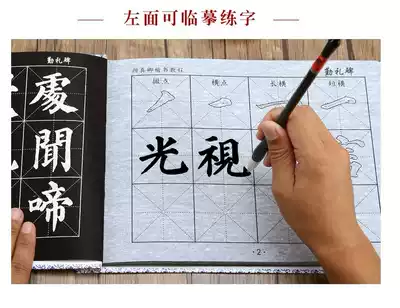 左面可临摹练字
勤礼碑
處
聞
啼
颜真卿楷书教程
勤礼碑
长横
短横
光視
·2·